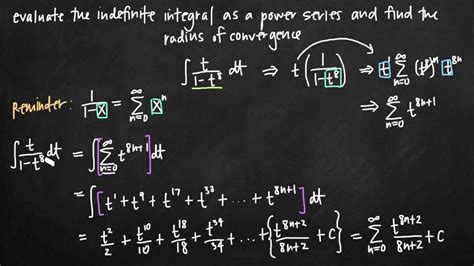 evaluate the indefinite integral as a power series and find the
radius of convergence
∫ t/(1-t⁸) dt ⇒ t(1/(1-t⁸)) ⇒ t ∑_{n=0}^{∞} (t⁸)ⁿ t⁸ⁿ
Reminder: 1/(1-x) = ∑_{n=0}^{∞} xⁿ
⇒ ∑_{n=0}^{∞} t⁸ⁿ⁺¹
∫ t/(1-t⁸) dt = ∫[∑_{n=0}^{∞} t⁸ⁿ⁺¹] dt
= ∫[t¹ + t⁹ + t¹⁷ + t³³ + ... + t⁸ⁿ⁺¹] dt
= t²/2 + t¹⁰/10 + t¹⁸/18 + t³⁴/34 + ... + {t⁸ⁿ⁺²/(8n+2) + C} = ∑_{n=0}^{∞} t⁸ⁿ⁺²/(8n+2) + C